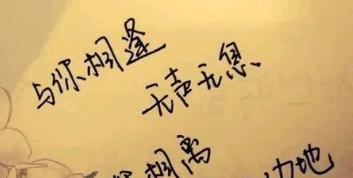 与你相逢
无声无息
相离
地